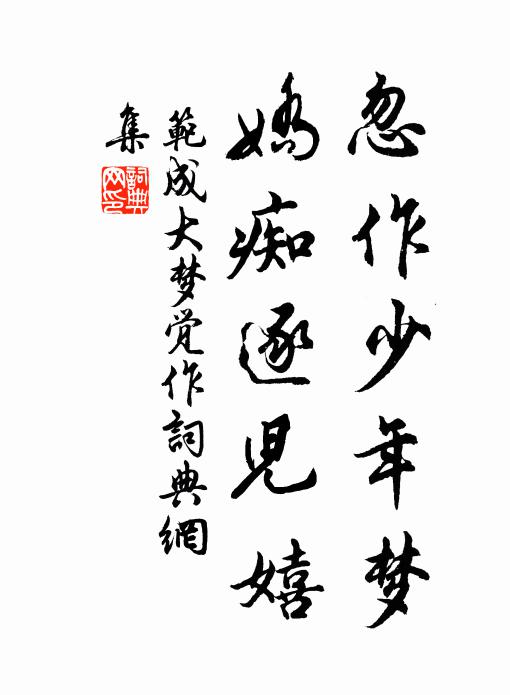 忽作少年梦
娇痴逐児嬉
範成大梦觉作詞典網
集
詞典
网印